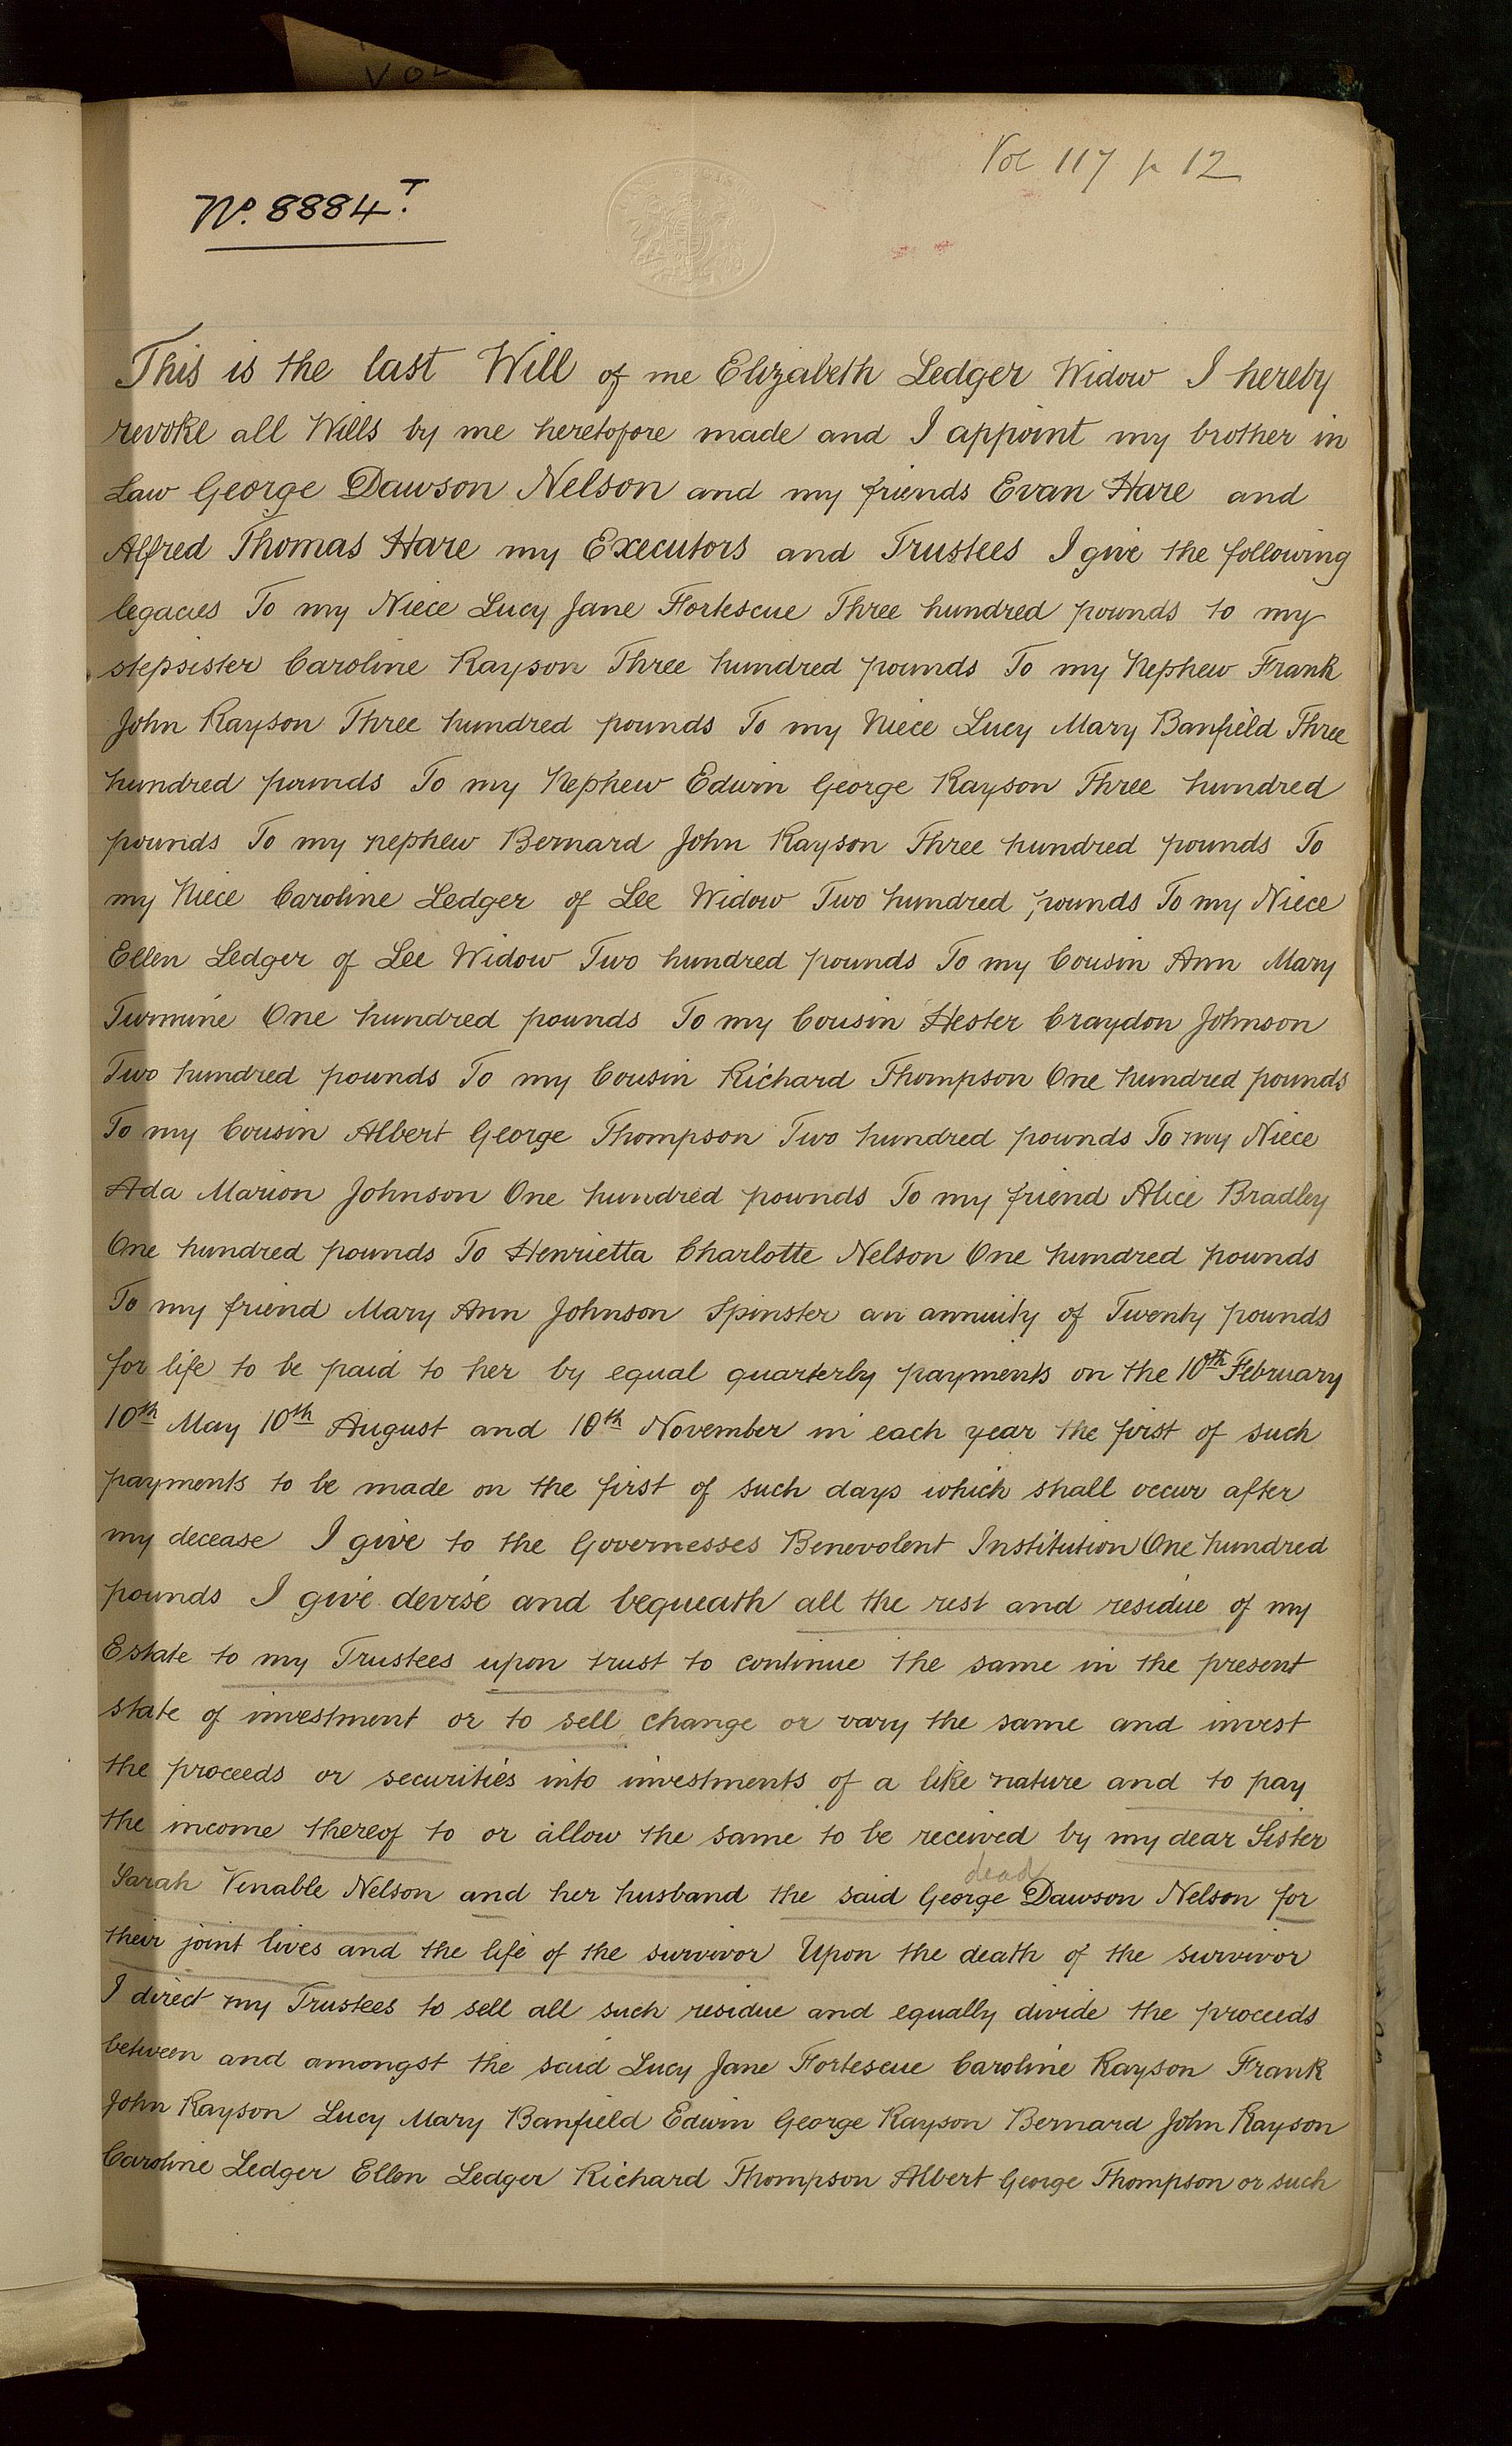 VOL
Vol 117 p 12
No. 8884T.
This is the last Will of me Elizabeth Ledger Widow I hereby
revoke all Wills by me heretofore made and I appoint my brother in
Law George Dawson Nelson and my friends Evan Hare and
Alfred Thomas Hare my Executors and Trustees I give the following
legacies To my Niece Lucy Jane Fortescue Three hundred pounds to my
stepsister Caroline Rayson Three hundred pounds To my Nephew Frank
John Rayson Three hundred pounds To my Niece Lucy Mary Banfield Three
hundred pounds To my Nephew Edwin George Rayson Three hundred
pounds To my nephew Bernard John Rayson Three hundred pounds To
my Niece Caroline Ledger of Lee Widow Two hundred pounds To my Niece
Ellen Ledger of Lee Widow Two hundred pounds To my Cousin Ann Mary
Turmine One hundred pounds To my Cousin Hester Craydon Johnson
Two hundred pounds To my Cousin Richard Thompson One hundred pounds
To my Cousin Albert George Thompson Two hundred pounds To my Niece
Ada Marion Johnson One hundred pounds To my friend Alice Bradley
One hundred pounds To Henrietta Charlotte Nelson One hundred pounds
To my friend Mary Ann Johnson Spinster an annuity of Twenty pounds
for life to be paid to her by equal quarterly payments on the 10th February
10th May 10th August and 10th November in each year the first of such
payments to be made on the first of such days which shall occur after
my decease I give to the Governesses Benevolent Institution One hundred
pounds I give devise and bequeath all the rest and residue of my
Estate to my Trustees upon trust to continue the same in the present
state of investment or to sell change or vary the same and invest
the proceeds or securities into investments of a like nature and to pay
the income thereof to or allow the same to be received by my dear Sister
dead
Sarah Venable Nelson and her husband the said George Dawson Nelson for
their joint lives and the life of the survivor Upon the death of the survivor
I direct my Trustees to sell all such residue and equally divide the proceeds
between and amongst the said Lucy Jane Fortescue Caroline Rayson Frank
John Rayson Lucy Mary Banfield Edwin George Rayson Bernard John Rayson
Caroline Ledger Ellen Ledger Richard Thompson Albert George Thompson or such